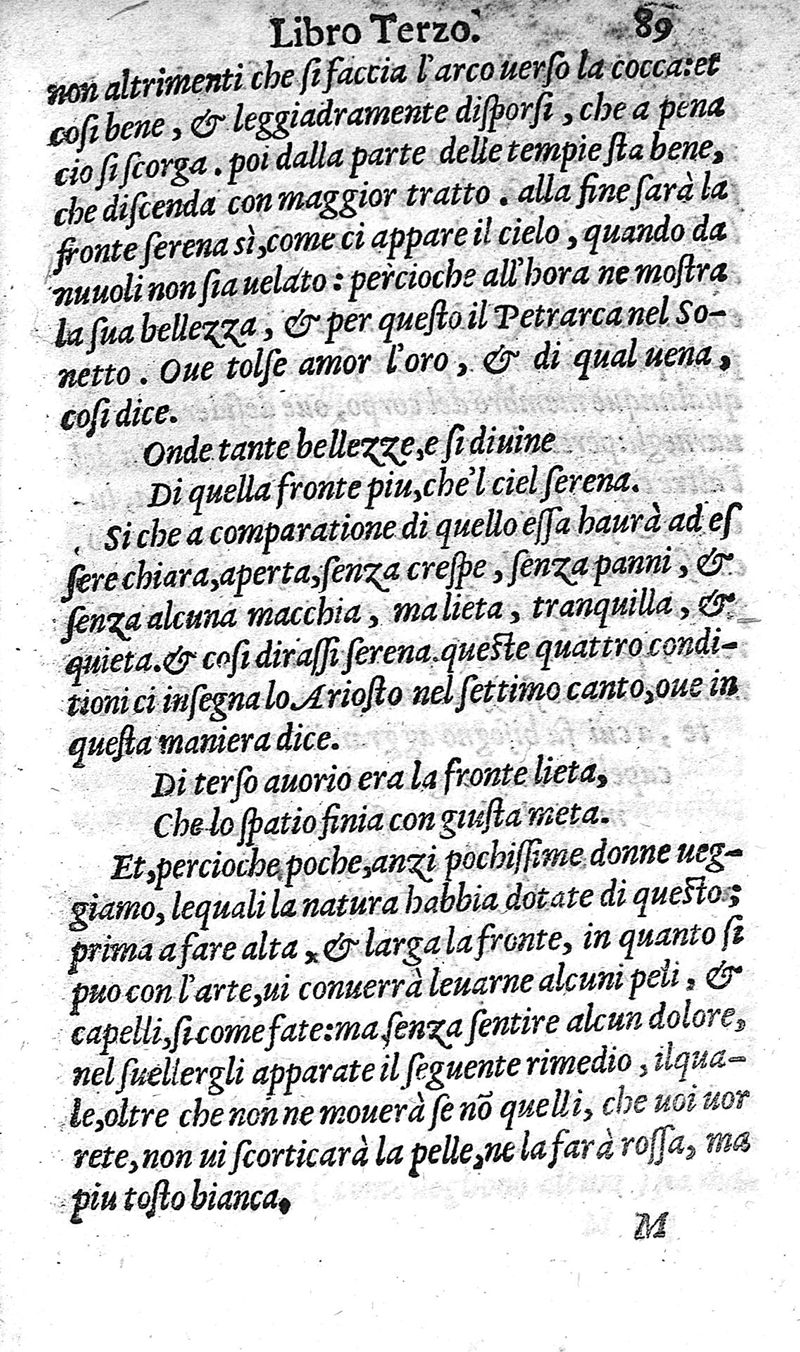 Libro Terzo. 89
non altrimenti che ſi faccia l'arco uerſo la cocca: et
coſi bene, & leggiadramente diſporſi, che a pena
cio ſi ſcorga. poi dalla parte delle tempie ſta bene,
che diſcenda con maggior tratto. alla fine ſarà la
fronte ſerena sì, come ci appare il cielo, quando da
nuuoli non ſia uelato: percioche all'hora ne moſtra
la ſua bellezza, & per queſto il Petrarca nel So-
netto. Oue tolſe amor l'oro, & di qual uena,
coſi dice.
Onde tante bellezze, e ſi diuine
Di quella fronte piu, che'l ciel ſerena.
Si che a comparatione di quello eſſa haurà ad eſ
ſere chiara, aperta, ſenza creſpe, ſenza panni, &
ſenza alcuna macchia, ma lieta, tranquilla, &
quieta. & coſi diraſſi ſerena. queſte quattro condi-
tioni ci inſegna lo Arioſto nel ſettimo canto, oue in
queſta maniera dice.
Di terſo auorio era la fronte lieta,
Che lo ſpatio finia con giuſta meta.
Et, percioche poche, anzi pochiſſime donne ueg-
giamo, lequali la natura habbia dotate di queſto;
prima a fare alta, & larga la fronte, in quanto ſi
puo con l'arte, ui conuerrà leuarne alcuni peli, &
capelli, ſi come fate: ma ſenza ſentire alcun dolore,
nel ſuellergli apparate il ſeguente rimedio, ilqua-
le, oltre che non ne mouerà ſe nõ quelli, che uoi uor
rete, non ui ſcorticarà la pelle, ne la farà roſſa, ma
piu toſto bianca.
M